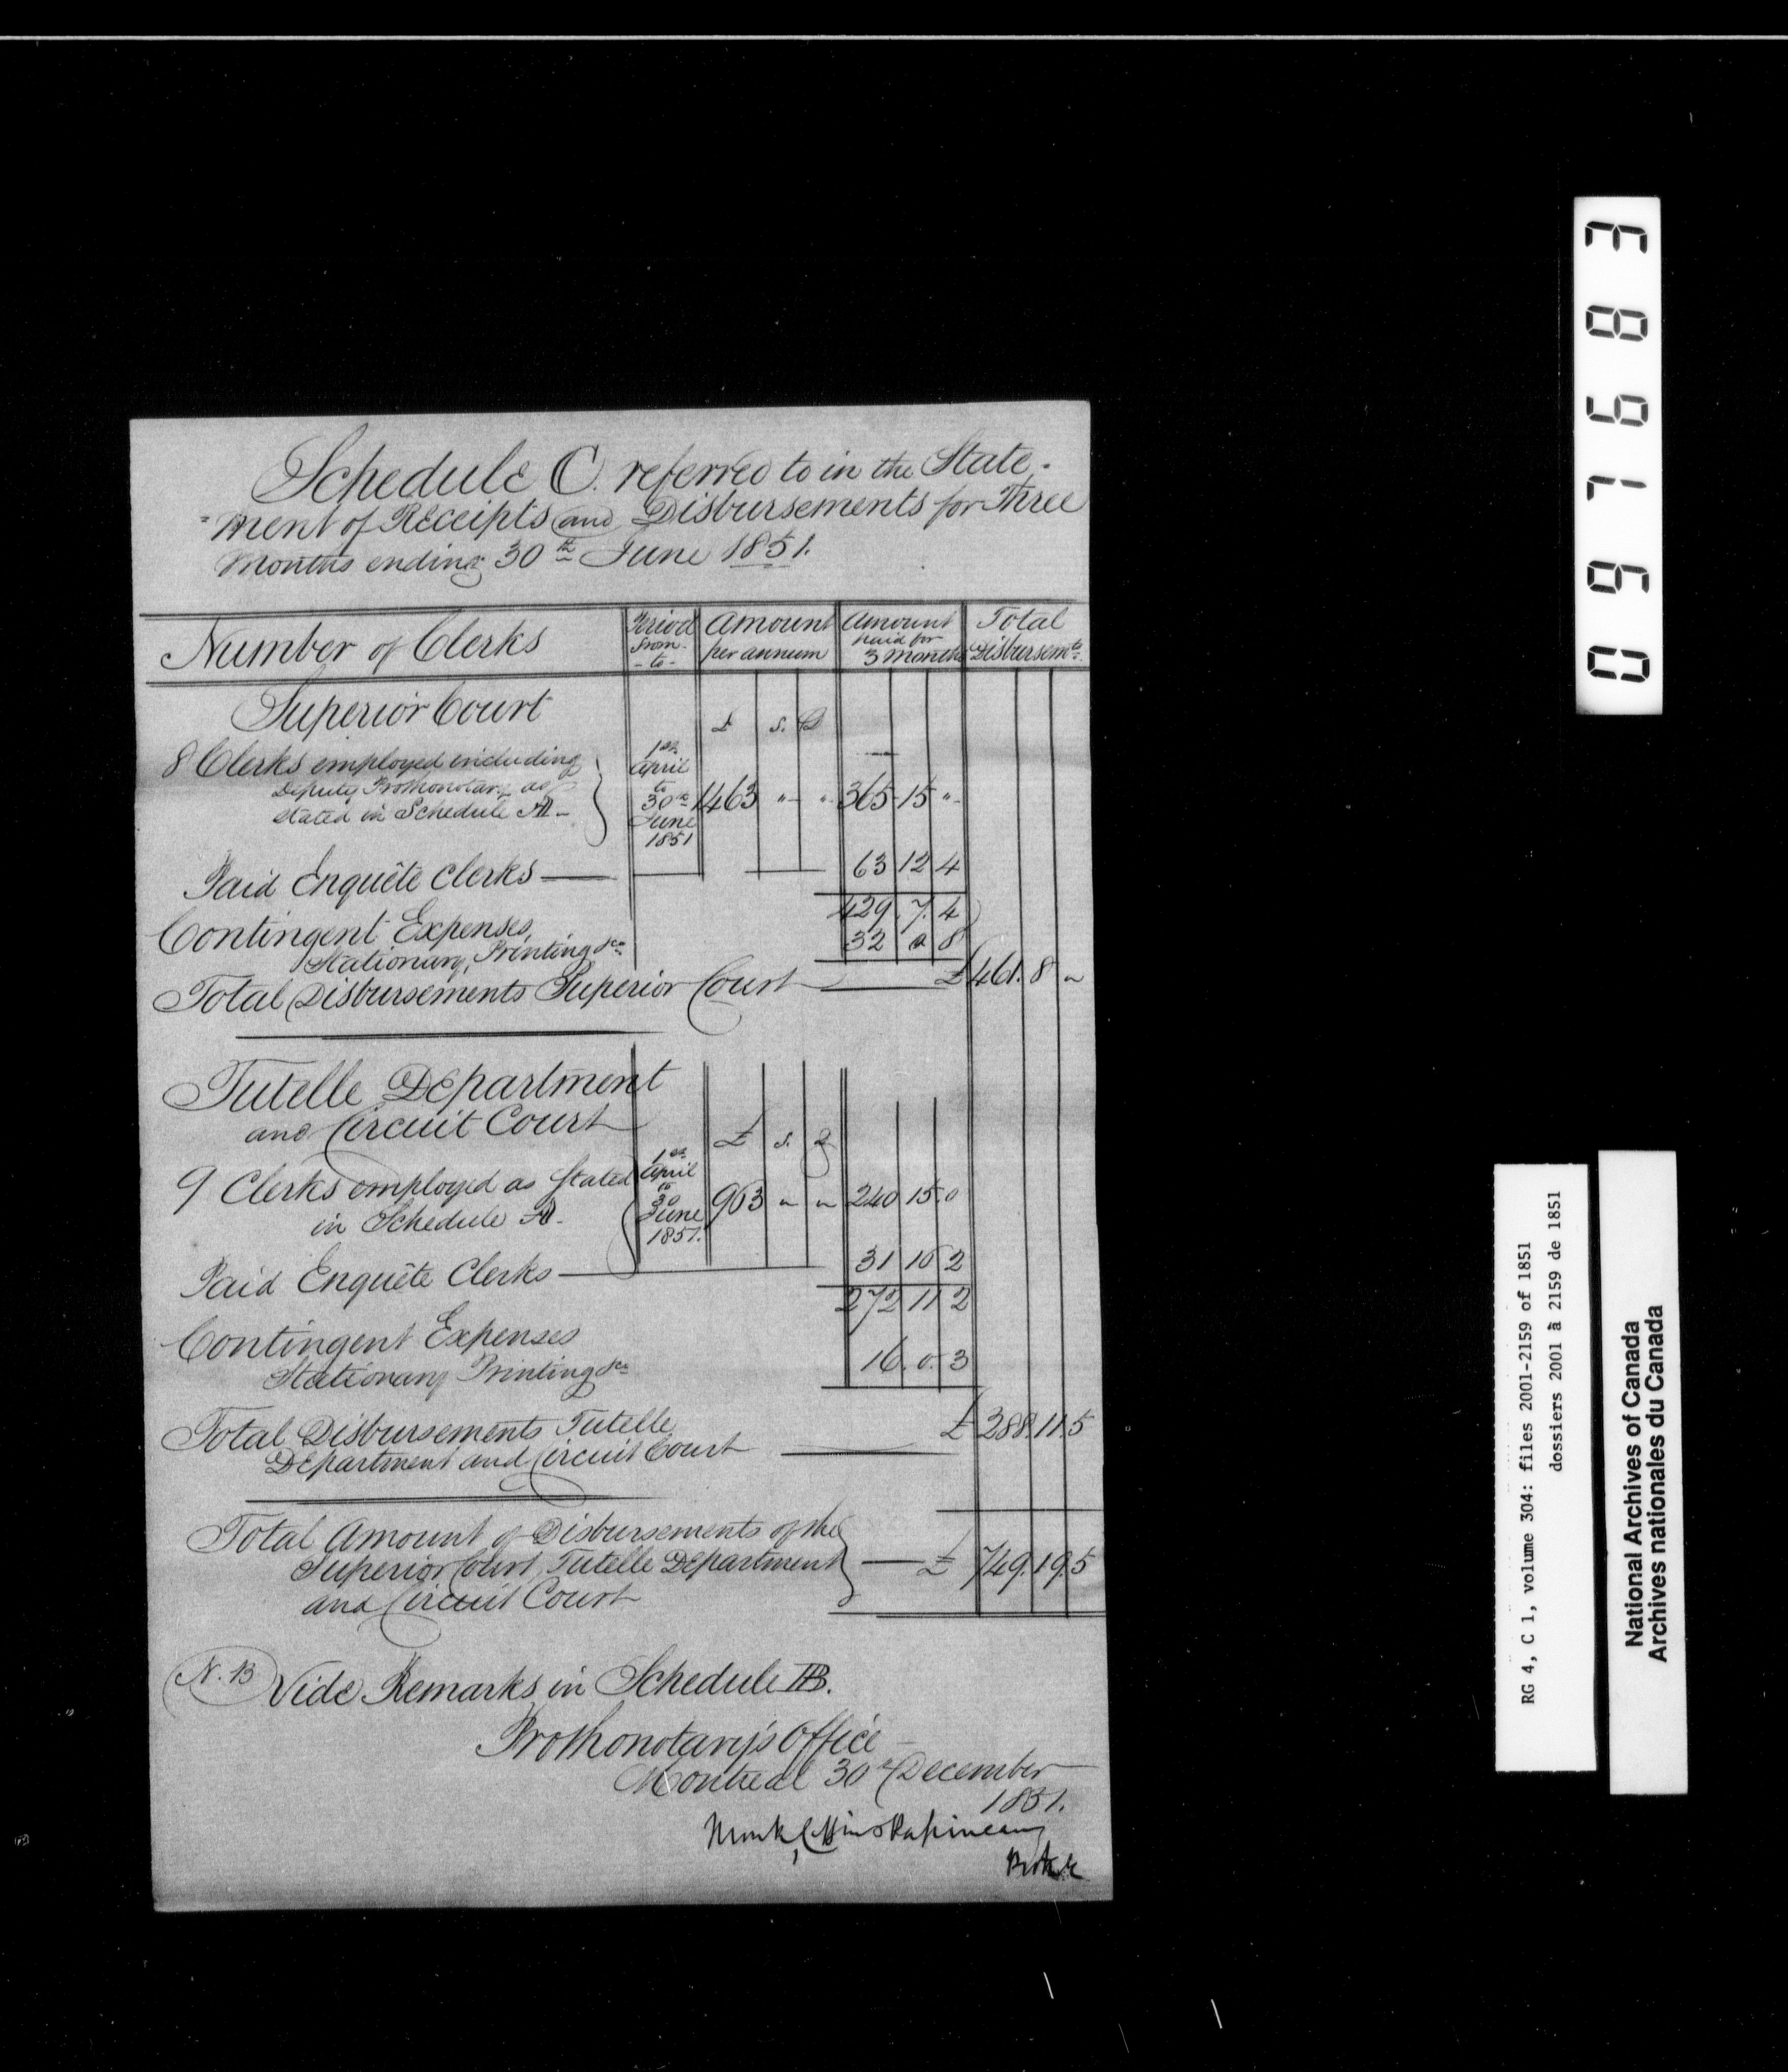 Schedule C. referred to in the State-
=ment of Receipts and Disbursements for Three
Months ending 30th June 1851.
Number of Clerks Period from - to - Amount per annum Amount paid for 3 Months Total Disbursemts.
Superior Court £ s. D
8 Clerks employed including
Deputy Prothonotary as
stated in Schedule A -
1st April to 30th June 1851 1463 " - " - 365 15 " -
Paid Enquête Clerks — 63 12 4
429. 7. 4
Contingent Expenses,
Stationary, Printing &ca 32 0 8
Total Disbursements Superior Court — £461. 8 "
Tutelle Department
and Circuit Court £ s. d
9 Clerks employed as Stated
in Schedule A.
1st April to 30 June 1851. 963 " " 240 15. 0
Paid Enquête Clerks — 31 16 2
272 11 2
Contingent Expenses
Stationary Printing &ca 16. 0. 3
Total Disbursements Tutelle
Department and Circuit Court — £288. 11. 5
Total Amount of Disbursements of the
Superior Court, Tutelle Department
and Circuit Court — £ 749. 19. 5
N. B Vide Remarks in Schedule B.
Prothonotary's Office -
Montreal 30th December
1851.
Monk, Coffin & Papineau
0916783
RG 4, C 1, volume 304: files 2001-2159 of 1851
dossiers 2001 à 2159 de 1851
National Archives of Canada
Archives nationales du Canada